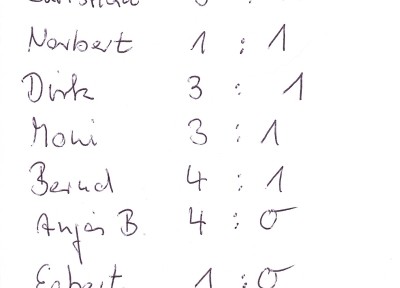 Norbert 1 : 1
Dirk 3 : 1
Moni 3 : 1
Bernd 4 : 1
Anja B. 4 : 0
1 : 0